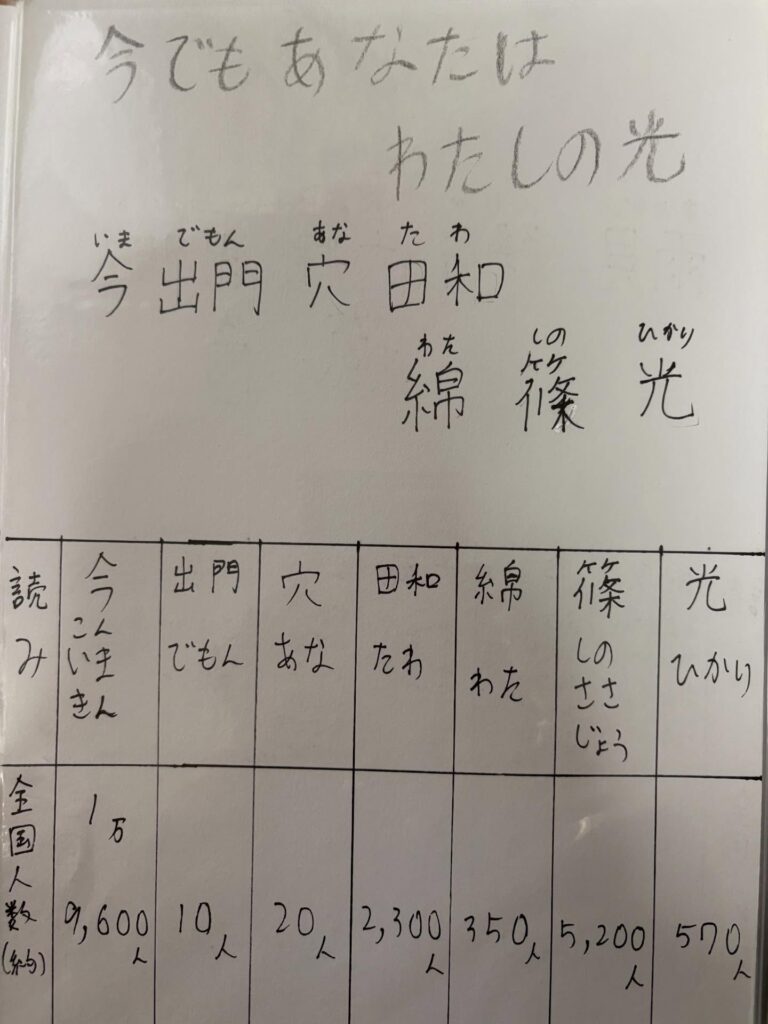 今でもあなたは
わたしの光
いま でもん あな た わ
今 出門 穴 田和
わた しの ひかり
綿 篠 光
読み 今 出門 穴 田和 綿 篠 光
こん いま きん でもん あな たわ わた しの ささ じょう ひかり
全国人数(約) 1万9,600人 10人 20人 2,300人 350人 5,200人 570人